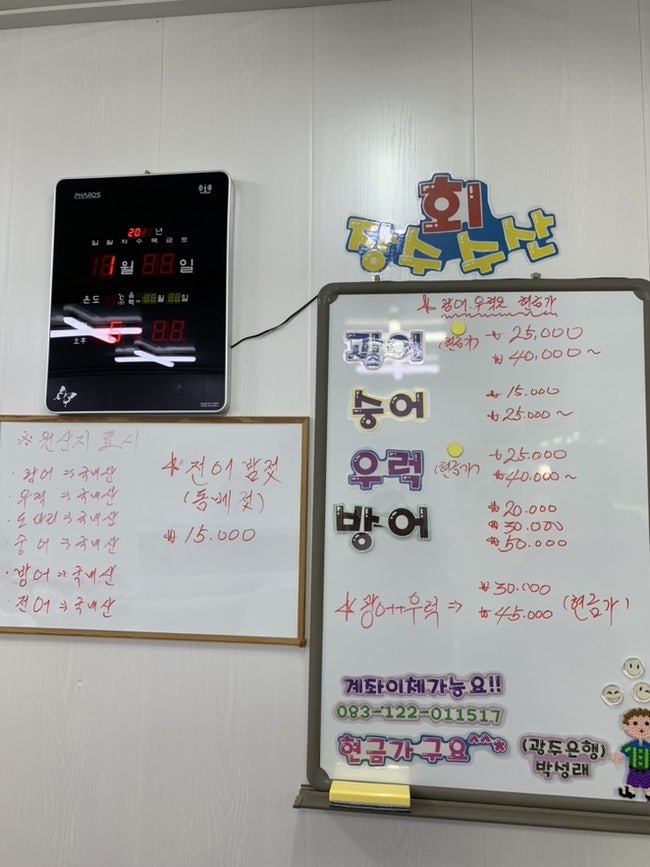 PHAROS
년
일 월 화 수 목 금 토
1 월 일
온도 ℃ 음력 월 일
오후
회
장수수산
※ 원산지 표시
· 광어 ⇒ 국내산
· 우럭 ⇒ 국내산
· 도다리 ⇒ 국내산
· 숭어 ⇒ 국내산
· 방어 ⇒ 국내산
· 전어 ⇒ 국내산
* 전어 밤젓
(돔베젓)
₩ 15.000
* 광어.우럭은 현금가
광어 (현금가) ₩ 25,000
₩ 40,000~
숭어 ₩ 15.000
₩ 25.000~
우럭 (현금가) ₩ 25.000
₩ 40.000~
방어 ₩ 20.000
₩ 30.000
₩ 50.000
* 광어+우럭 ⇒ ₩ 30.000
₩ 45.000 (현금가)
계좌이체가능요!!
083-122-011517
현금가구요^^*
(광주은행)
박성래